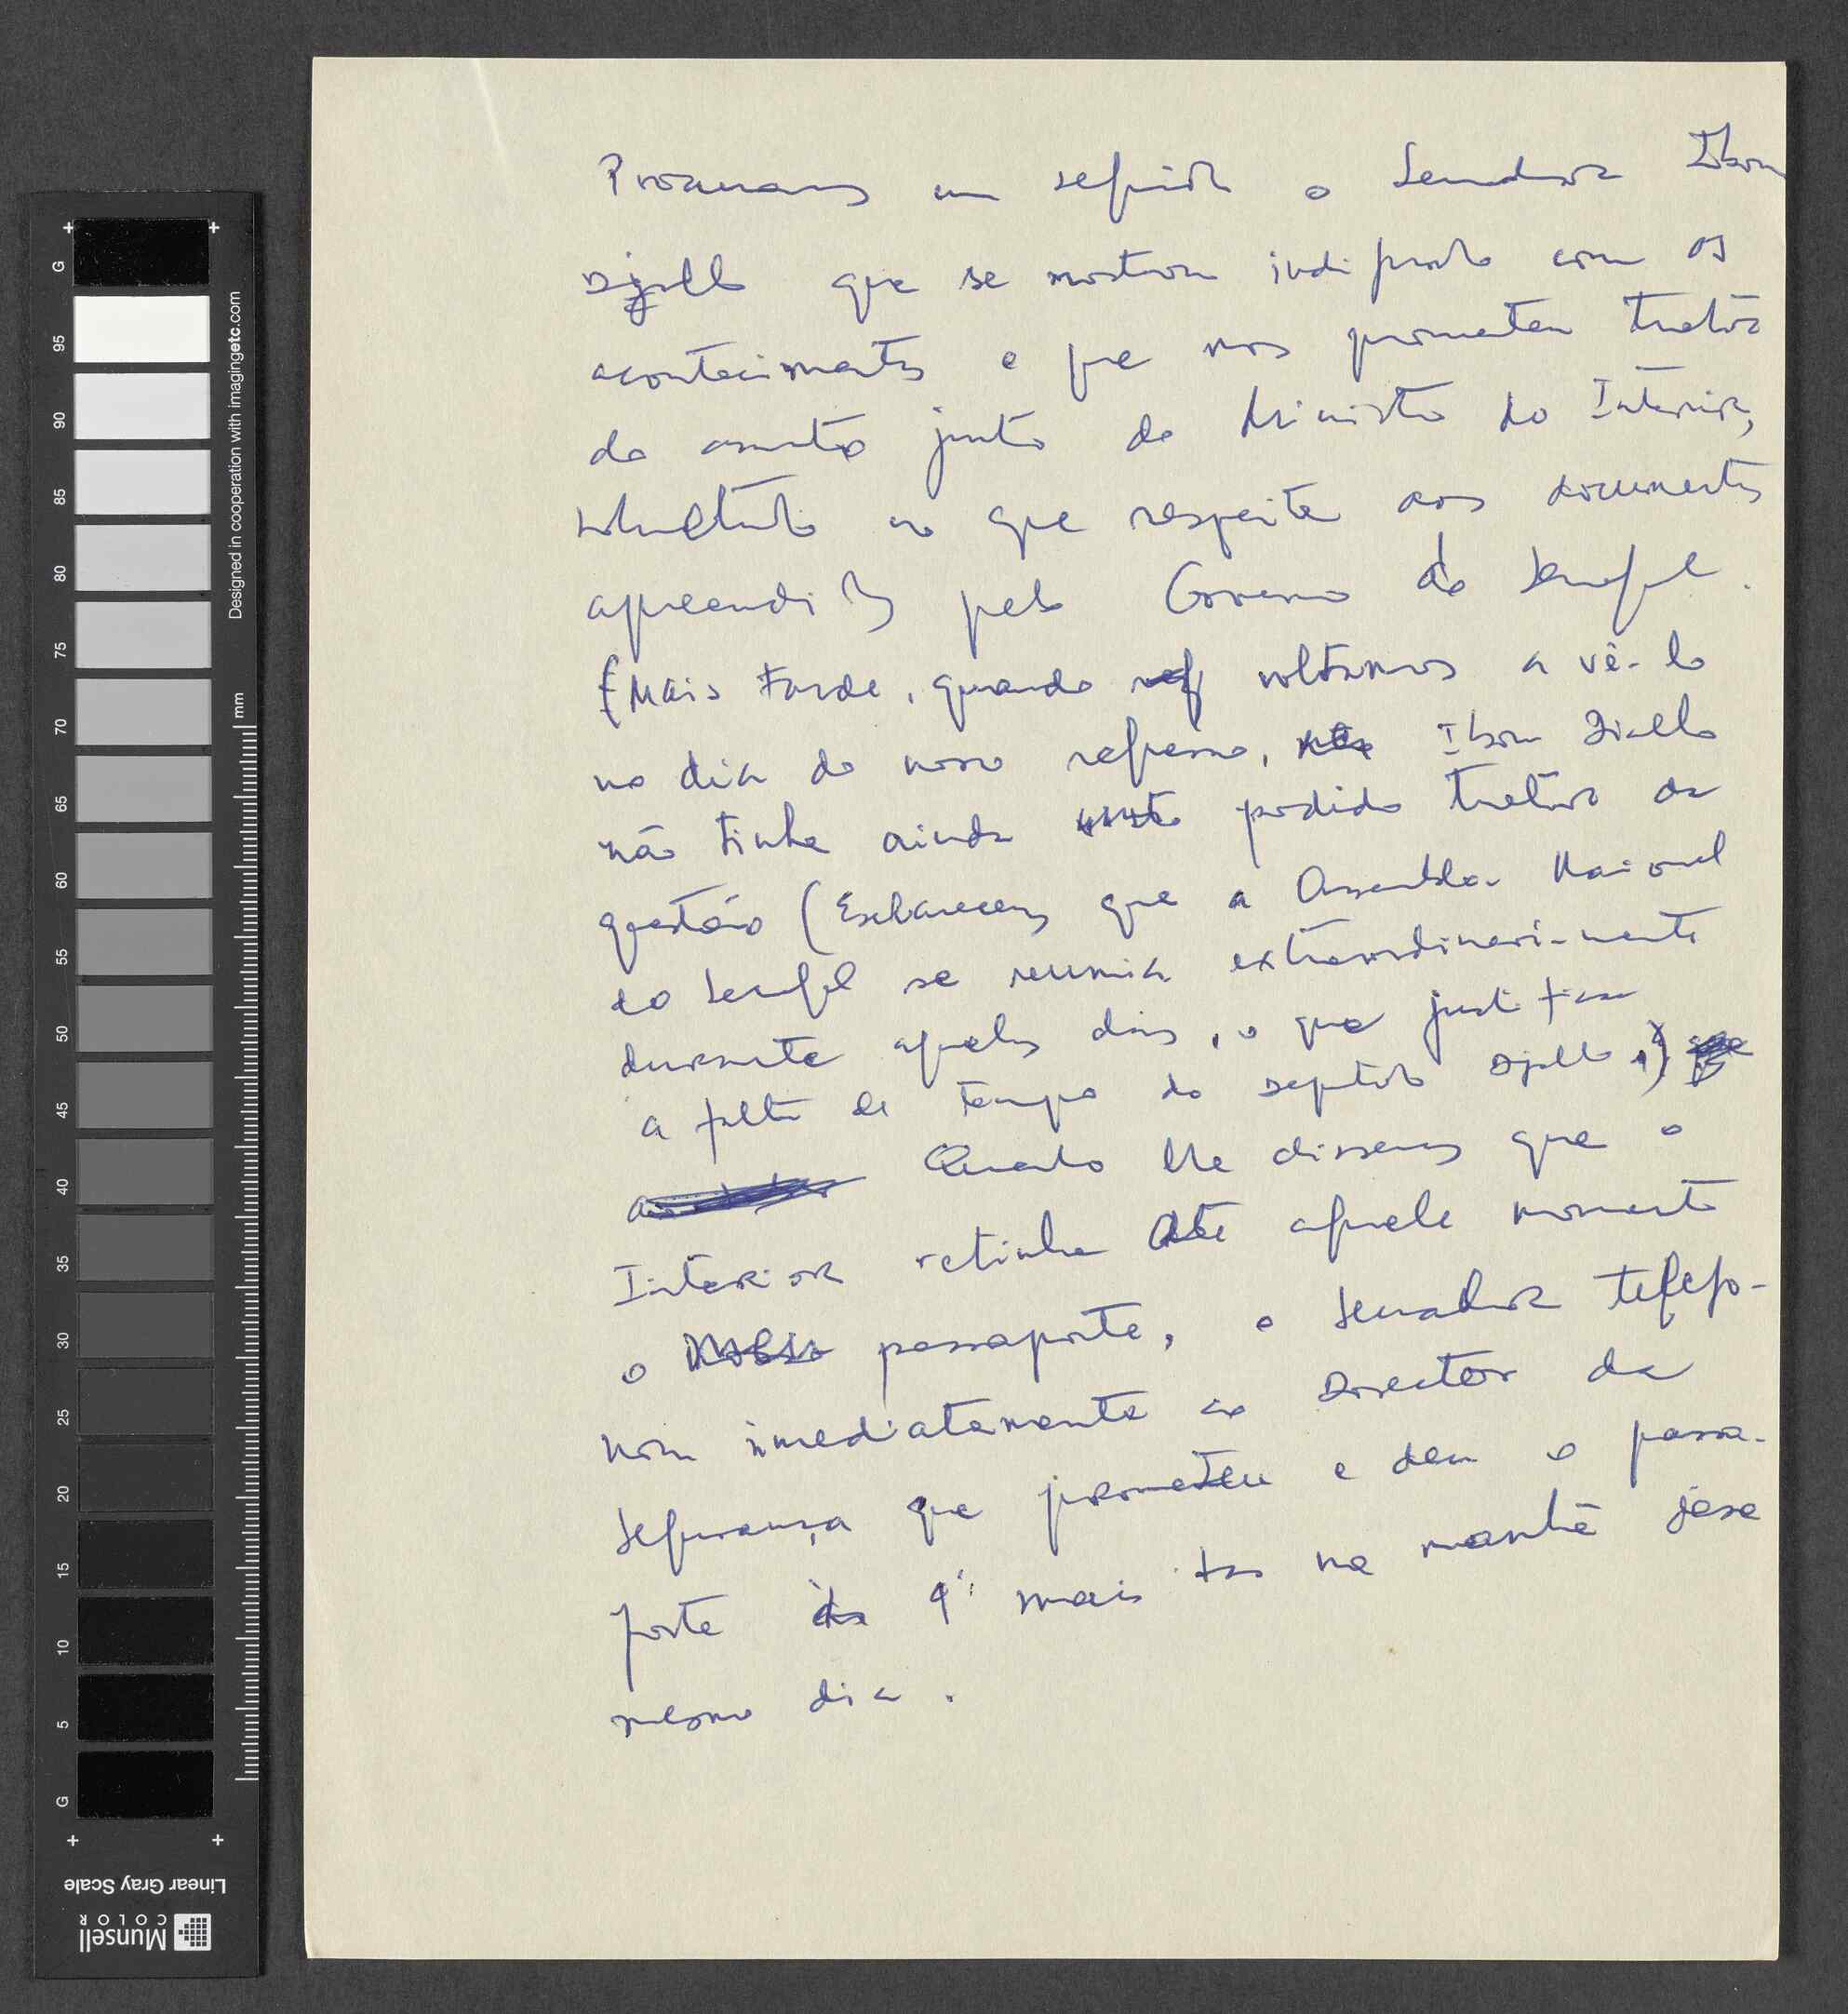 Procuramos em seguida o Senador Ibou
Djallo que se mostrou indignado com os
acontecimentos e que nos prometeu tratar
do assunto junto do Ministro do Interior,
sobretudo no que respeita aos documentos
apreendidos pelo Governo do Senegal.
(Mais tarde, quando voltamos a vê-lo
no dia do nosso regresso, Ibou Diallo
não tinha ainda podido tratar da
questão (Esclarecemos que a Assembleia Nacional
do Senegal se reunia extraordinari-mente
durante aqueles dias, o que justifica
a falta de tempo do deputado Djallo.)
Quando lhe dissemos que o
Interior retinha até aquele momento
o passaporte, o Senador telefo-
nou imediatamente ao Director da
Segurança que prometeu e deu o passa-
porte mais na manhã desse
mesmo dia.
G 95 90 85 80 75 70 65 60 55 50 45 40 35 30 25 20 15 10 5 G
mm
Designed in cooperation with imagingetc.com
Linear Gray Scale
Munsell
COLOR